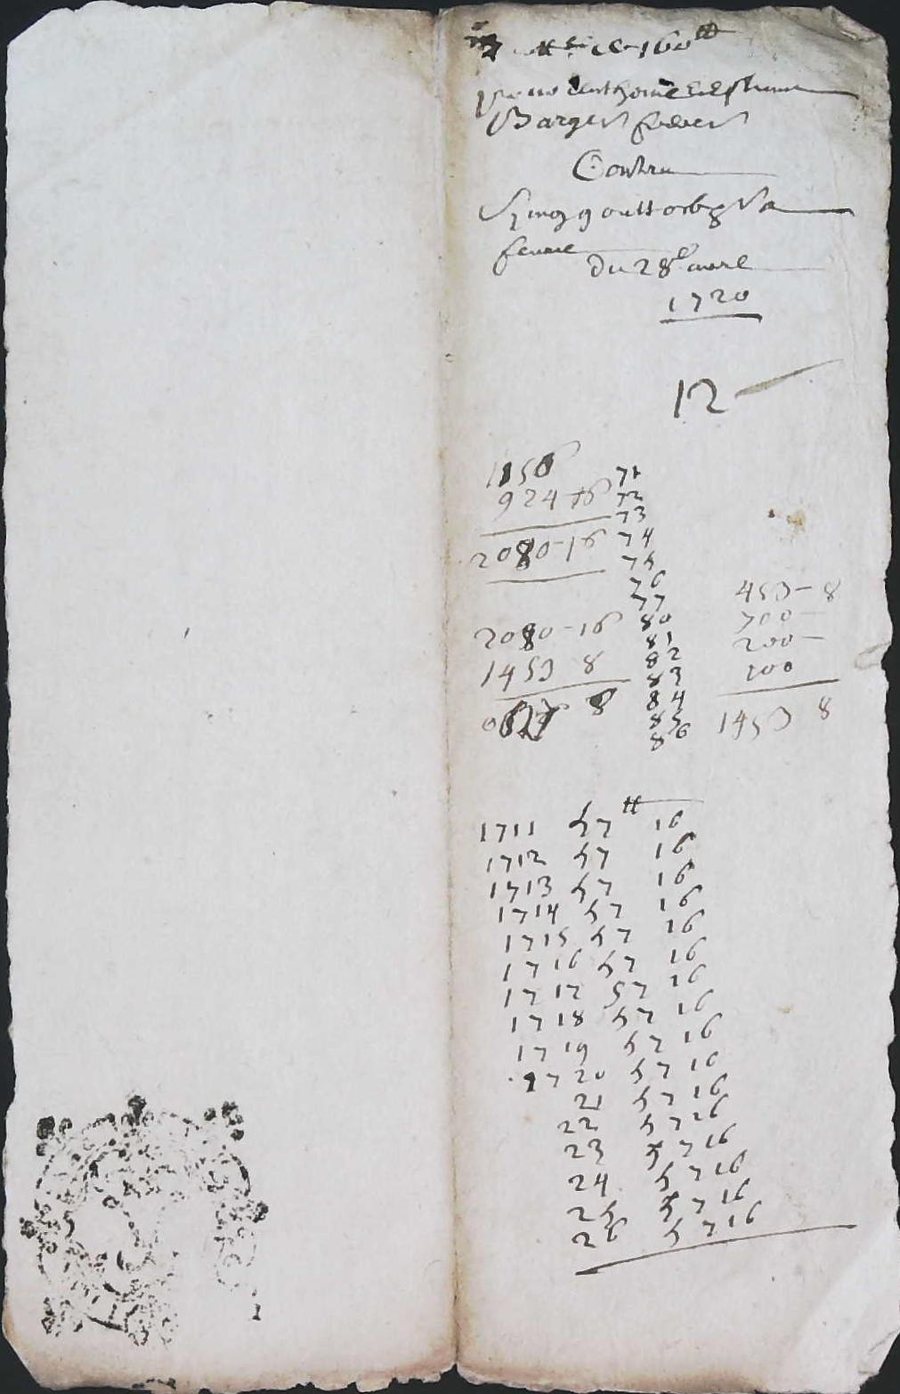 160 ₶
Barges freres
Contre
femme
du 28e avrl
1720
12
1156
924-16
2080-16
71
72
73
74
75
76
77
80
81
82
83
84
85
86
2080-16
1453 8
0627 8
453-8
700-
200-
100
1453 8
1711 57 ₶ 16
1712 57 16
1713 57 16
1714 57 16
1715 57 16
1716 57 16
1717 57 16
1718 57 16
1719 57 16
1720 57 16
21 57 16
22 57 16
23 57 16
24 57 16
25 57 16
26 57 16